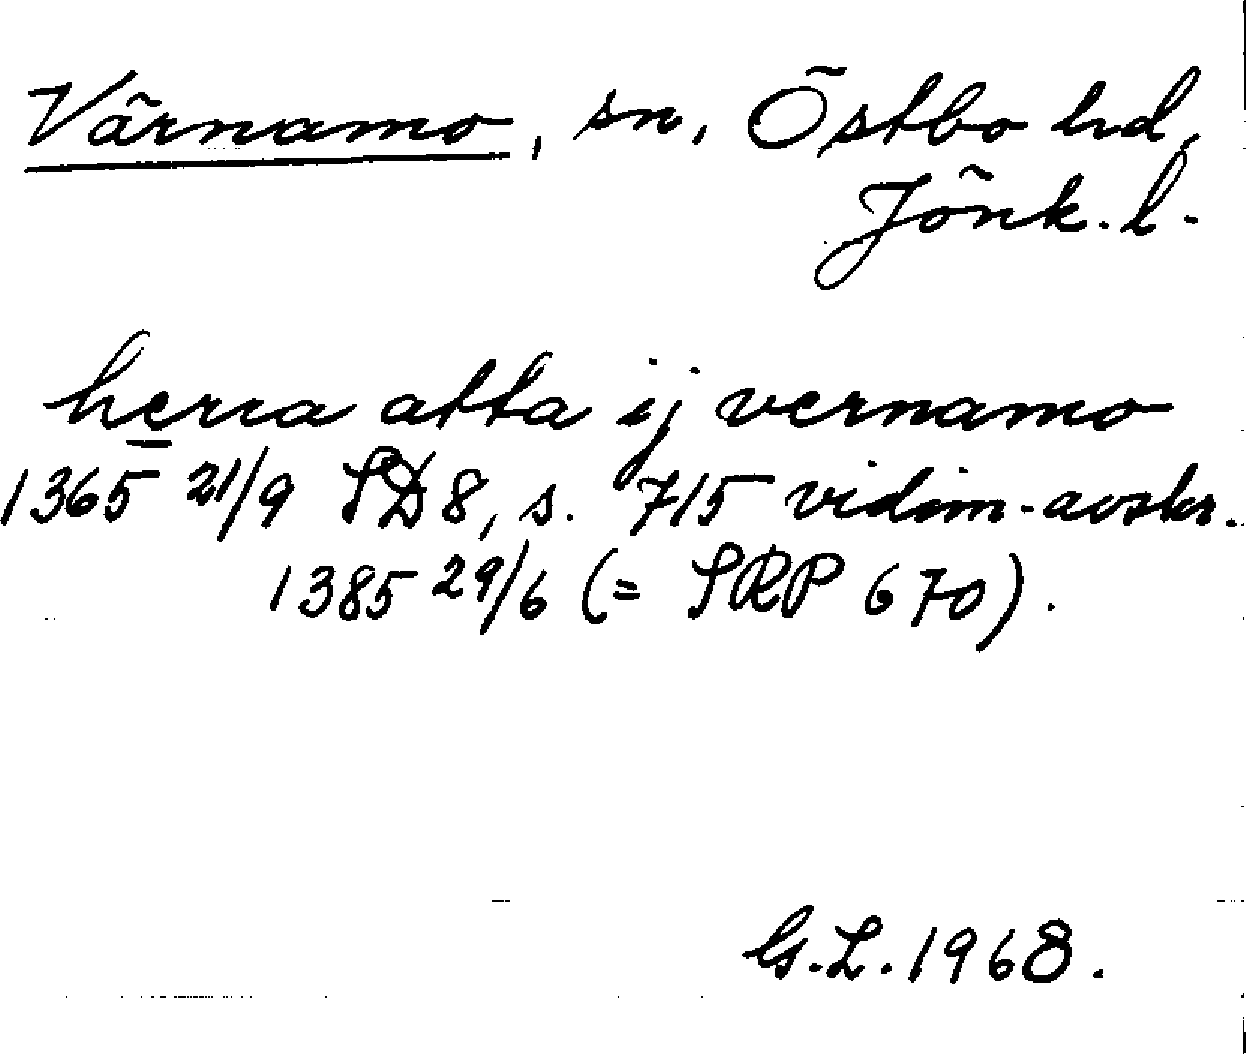 Värnamo, sn, Östbo hd,
Jönk. l.
herra atta ij vernamo
1365 21/9 SD 8, s. 715 vidim. avskr.
1385 29/6 (= SRP 670).
G.L. 1968.